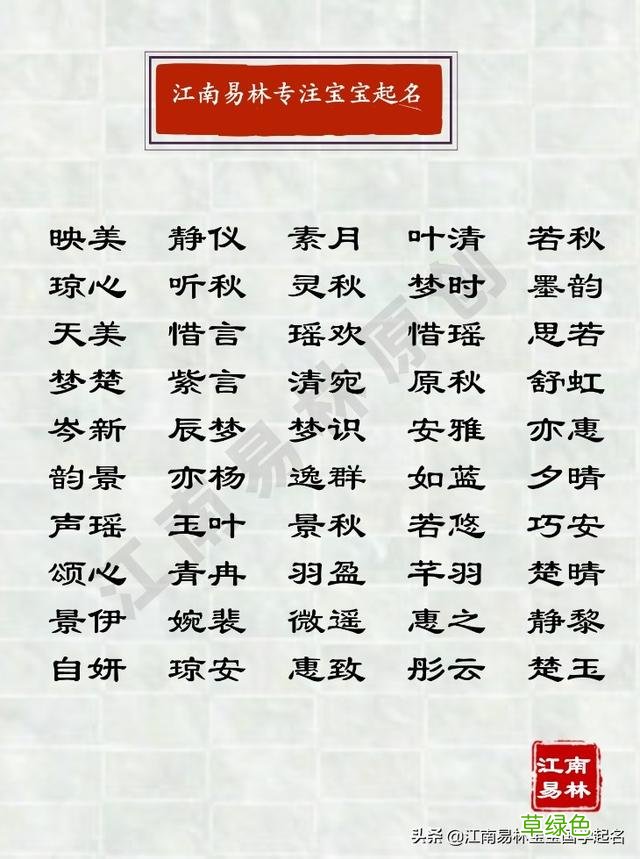 江南易林专注宝宝起名
映美 静仪 素月 叶清 若秋
琼心 听秋 灵秋 梦时 墨韵
天美 惜言 瑶欢 惜瑶 思若
梦楚 紫言 清宛 原秋 舒虹
岑新 辰梦 梦识 安雅 亦惠
韵景 亦杨 逸群 如蓝 夕晴
声瑶 玉叶 景秋 若悠 巧安
颂心 青冉 羽盈 芊羽 楚晴
景伊 婉裴 微遥 惠之 静黎
自妍 琼安 惠致 彤云 楚玉
江南易林原创
江南
易林
草绿色
头条 @江南易林宝宝国学起名